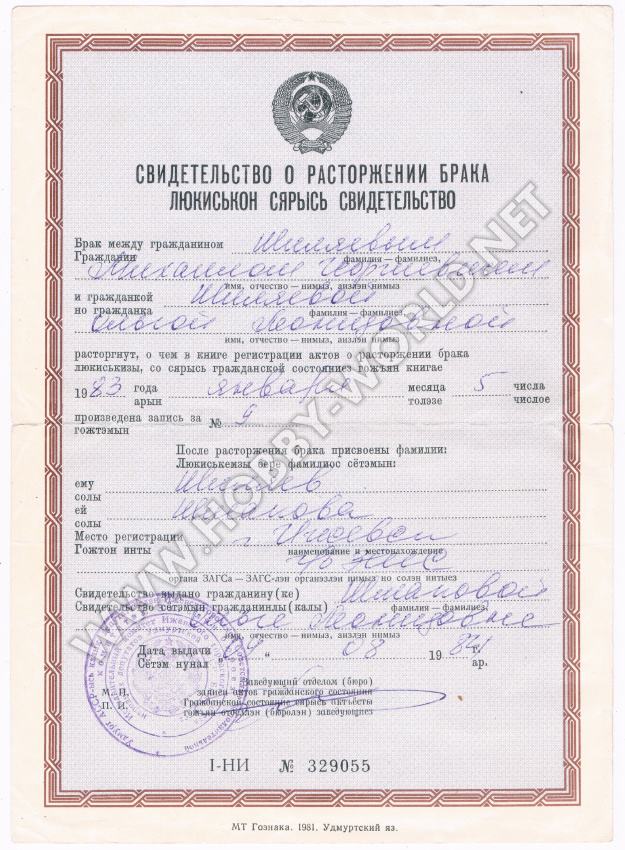 СВИДЕТЕЛЬСТВО О РАСТОРЖЕНИИ БРАКА
ЛЮКИСЬКОН СЯРЫСЬ СВИДЕТЕЛЬСТВО
Брак между гражданином Шиляевым
Граждании фамилия — фамилиез,
Михаилом Георгиевичем
имя, отчество — нимыз, анзлэн нимыз
и гражданкой Шиляевой
но гражданка фамилия — фамилиез,
Ольгой Леонидовной
имя, отчество — нимыз, анзлэн нимыз
расторгнут, о чем в книге регистрации актов о расторжении брака
люкиськизы, со сярысь гражданской состояниез гожъян книгае
1983 года января месяца 5 числа
арын толэзе числое
произведена запись за № 9
гожтэмын
После расторжения брака присвоены фамилии:
Люкиськемзы бере фамилиос сётэмын:
ему Шиляев
солы
ей Шмакова
солы
Место регистрации г. Ижевск
Гожтон инты наименование и местонахождение
ЗАГС
органа ЗАГСа — ЗАГС-лэн органэзлэн нимыз но солэн интыез
Свидетельство выдано гражданину (ке) Шмаковой
Свидетельство сётэмын гражданинлы (калы) фамилия — фамилиез,
Ольге Леонидовне
имя, отчество — нимыз, анзлэн нимыз
Дата выдачи „09“ 08 1984 г.
Сётэм нунал ар.
Заведующий отделом (бюро)
М. П. записи актов гражданского состояния
П. И. Гражданской состояние сярысь актъёсты
гожъян отделэн (бюролэн) заведующиез
I-НИ № 329055
МТ Гознака. 1981. Удмуртский яз.
WWW.HOBBY-WORLD.NET